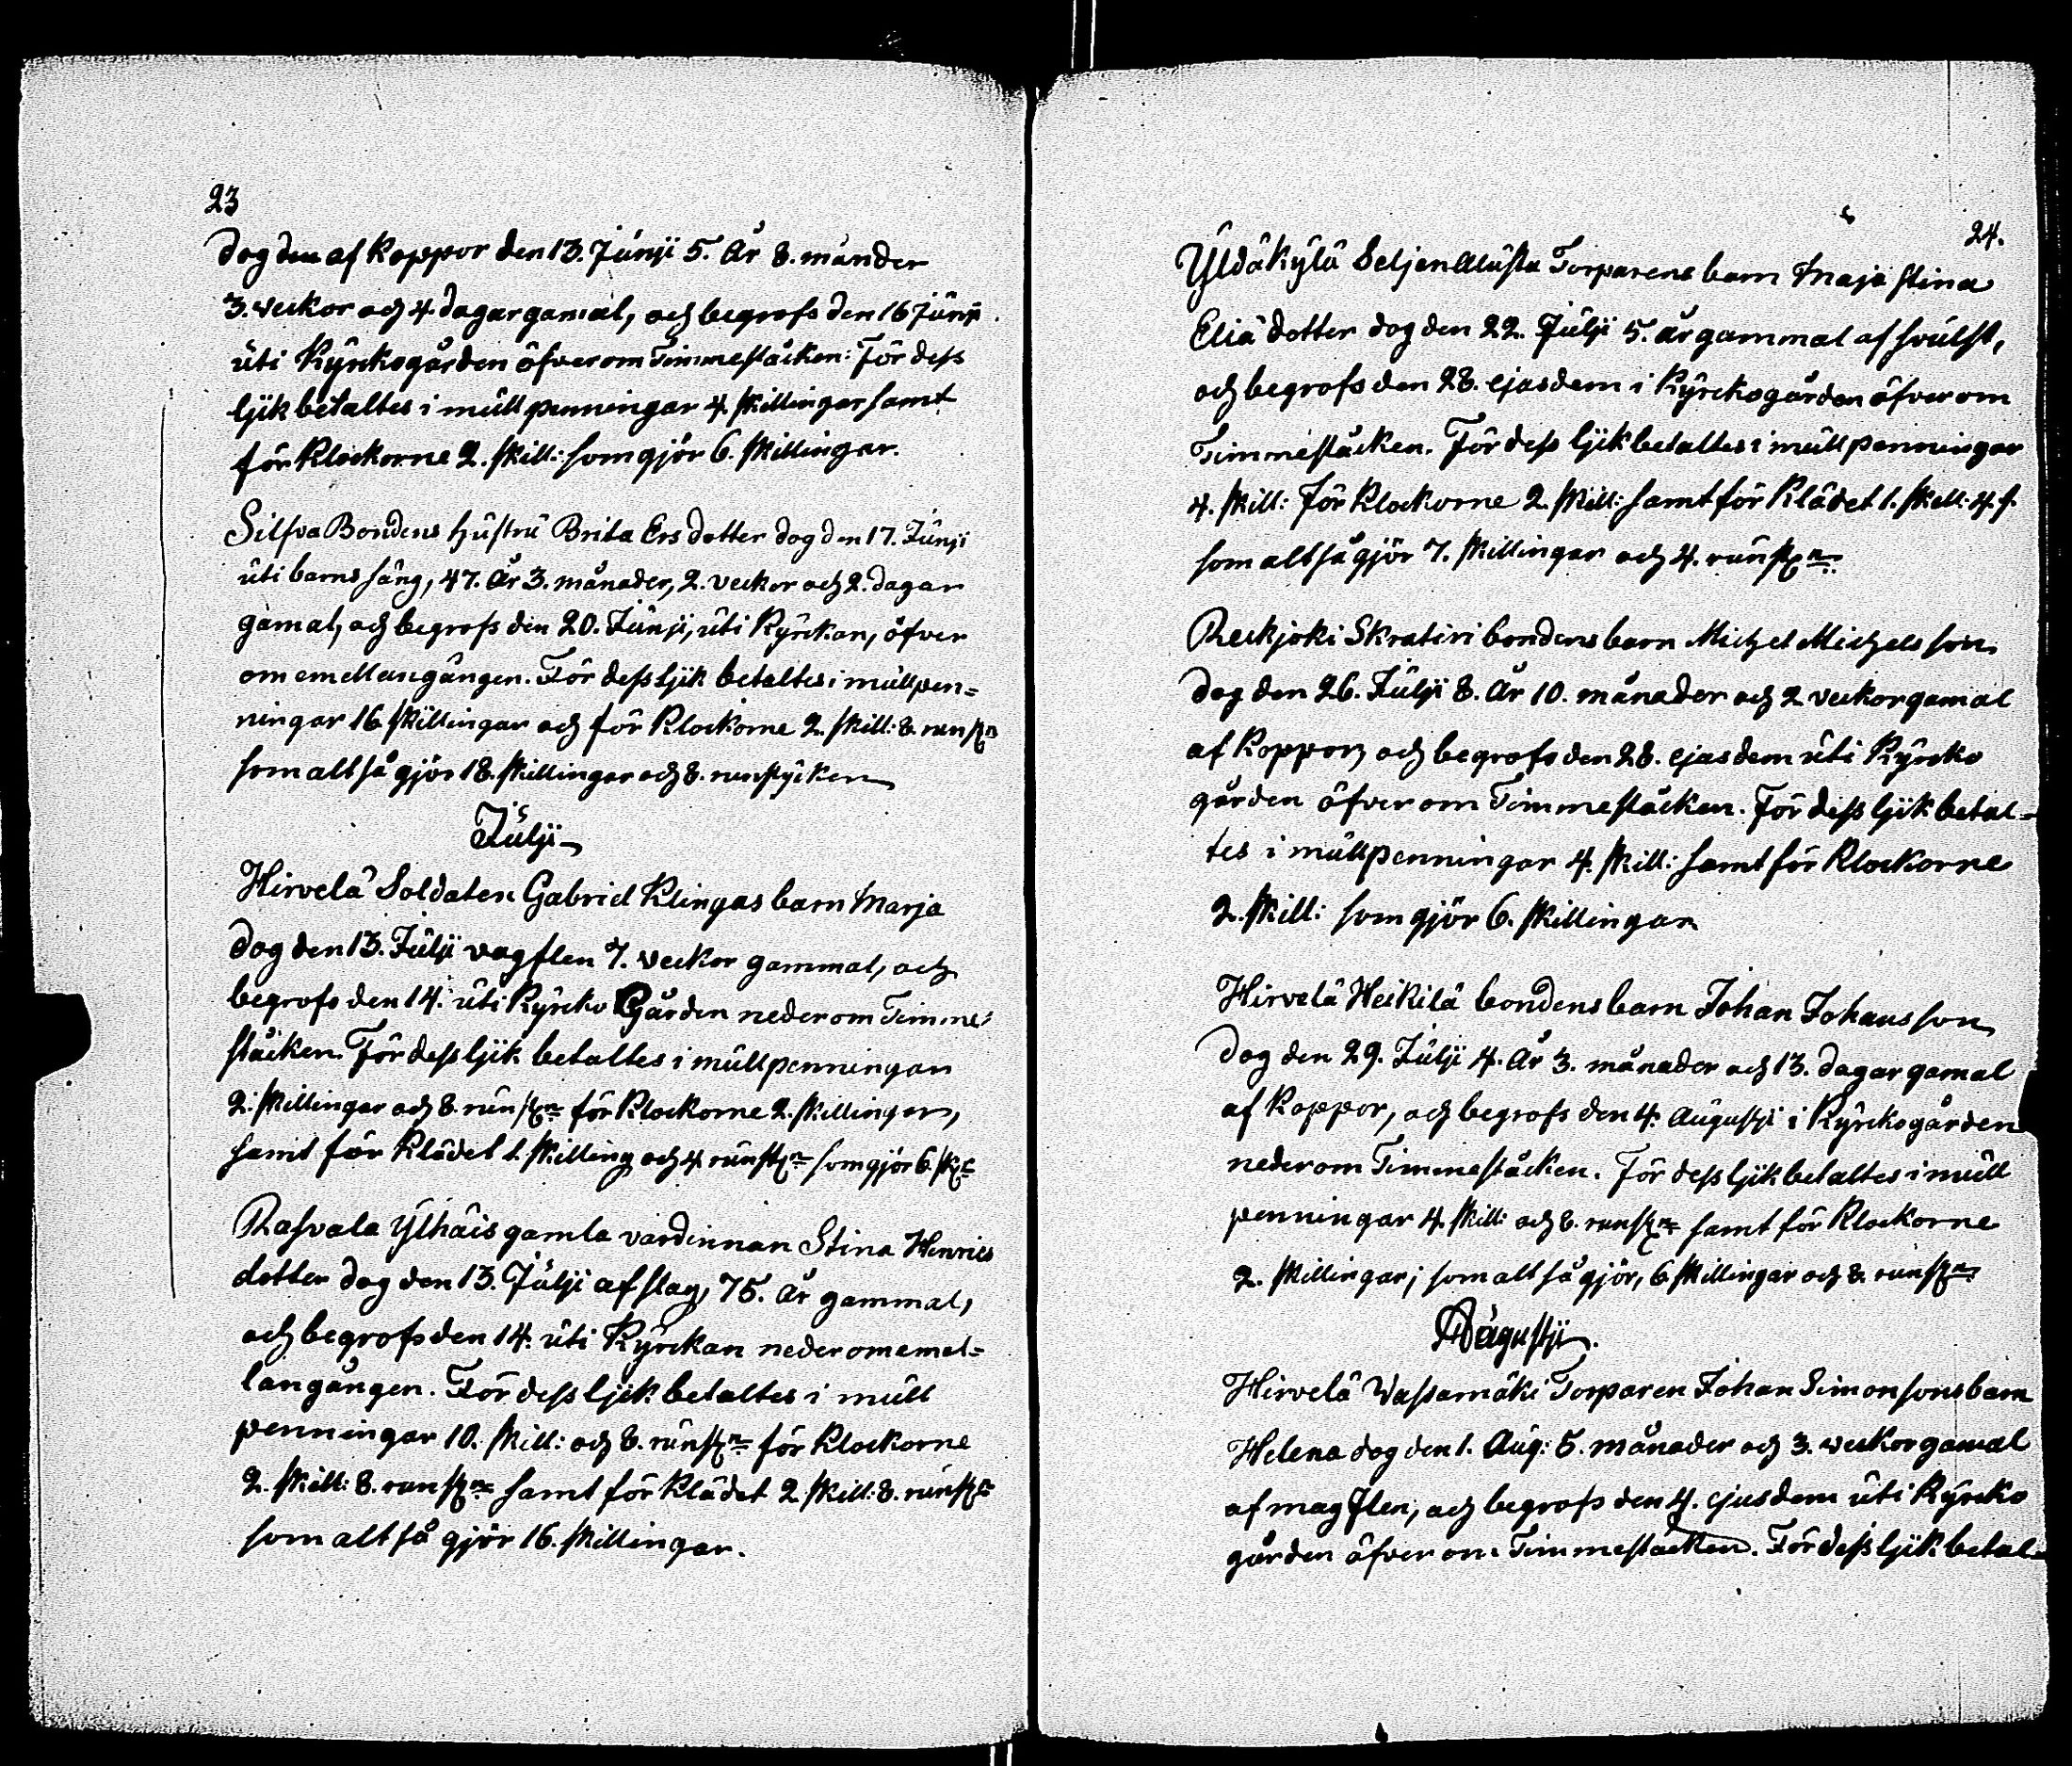 23
dog den af koppor den 13. Junji 5. år 8. månder
3. veckor och 4. dagar gamal, och begrofs den 16 Junji
uti Kyrckogården öfverom Timmestäcken: För dess
ljik betaltes i mullpenningar 4. skillingar samt
för Klockorne 2. skill: som gjör 6. skillingar.
Silfva Bondens hustru Brita Ersdotter dog den 17. Junji
uti barnsäng, 47. år 3. månader, 2. veckor och 2. dagar
gamal, och begrofs den 20. Junji, uti Kyrckan, öfver
om emellangången. För dess ljik betaltes i mullpen=
ningar 16 skillingar och för Klockorne 2. skill: 8. runst:n
som altså gjör 18. skillingar och 8. runstycken
Julji
Hirvelä Soldaten Gabriel Klingas barn Marja
dog den 13. Julji vagflen 7. veckor gammal, och
begrofs den 14. uti Kyrcko Gården nederom Timme=
stäcken. För dess ljik betaltes i mullpenningar
2. skillingar och 8. runst:n för Klockorne 2. skillingar,
samt för Klädet 1. skilling och 4 runst:n som gjör 6. sk:r
Rasvala Ylhäis gamla värdinnan Stina Henrics
dotter dog den 13. Julji af slag, 75. år gammal,
och begrofs den 14. uti Kyrckan nederom emel=
langången. För dess ljik betaltes i mull
penningar 10. skill: och 8. runst:n för Klockorne
2. skill: 8. runst:n samt för klädet 2 skill: 8. runst:r
som altså gjör 16. skillingar.
24.
Yldäkylä Seljänalusta Torparens barn Maja Stina
Eliä dotter dog den 22. Julji 5. år gammal af svulst,
och begrofs den 28. ejusdem i Kyrckogården öfverom
Timmestäcken. För dess ljik betaltes i mullpenningar
4. skill: För Klockorne 2. skill: samt för Klädet 1. skill: 4. s.
som altså gjör 7. skillingar och 4. runst:n
Reckjoki Skratiri bondens barn Michel Michelsson
dog den 26. Julji 8. år 10. månader och 2 veckor gamal
af Koppor, och begrofs den 28. ejusdem uti Kyrcko
gården öfverom Timmestäcken. För dess ljik betal=
tes i mullpenningar 4. skill: samt för Klockorne
2. skill: som gjör 6. skillingar
Hirvelä Heikilä bondens barn Johan Johansson
dog den 29. Julji 4. år 3. månader och 13. dagar gamal
af Koppor, och begrofs den 4. Augustji i Kyrckogården
nederom Timmestäcken. För dess ljik betaltes i mull
penningar 4. skill: och 8. runst:n samt för Klockorne
2. skillingar; som altså gjör, 6 skillingar och 8. runst:n
Augustji.
Hirvelä Wassarnäki Torparen Johan Simonsons barn
Helena dog den 1. Aug: 5. månader och 3. veckor gamal
af magflen, och begrofs den 4. ejusdem uti Kyrcko
gården öfverom Timmestäcken. För dess ljik betal=